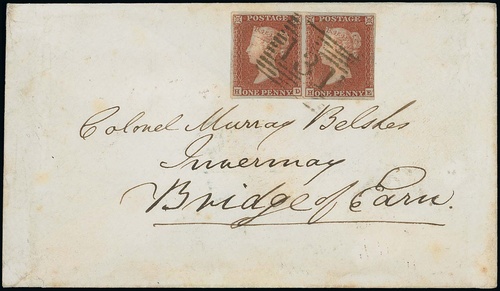 POSTAGE POSTAGE
H ONE PENNY D H ONE PENNY E
Colonel Murray Belshes
Invermay
Bridge of Earn.